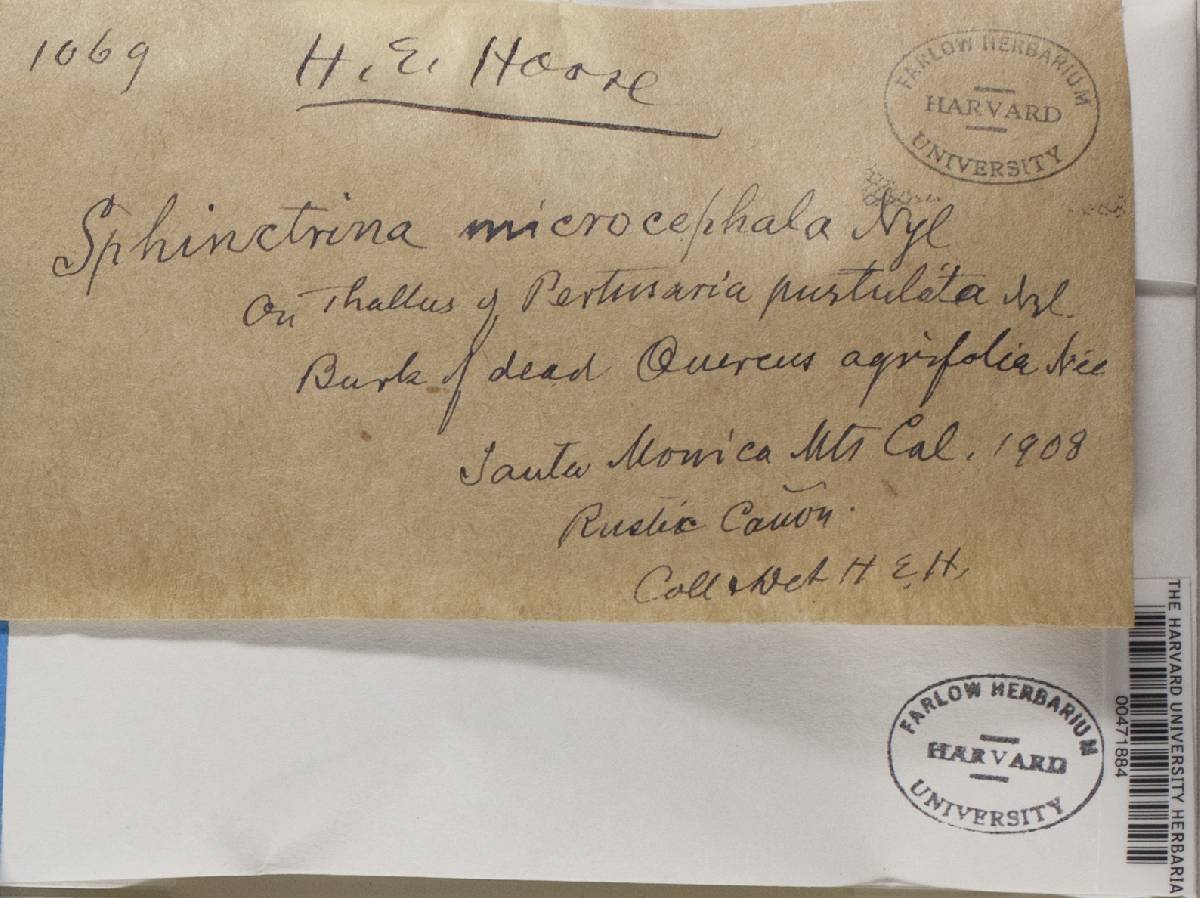 1069 H. E. Hasse
FARLOW HERBARIUM
HARVARD
UNIVERSITY
Sphinctrina microcephala Nyl
On Thallus of Pertusaria pustulata Nyl.
Bark of dead Quercus agrifolia Née
Santa Monica Mts Cal. 1908
Rustic Cañon.
Coll & Det H E H.
FARLOW HERBARIUM
HARVARD
UNIVERSITY
THE HARVARD UNIVERSITY HERBARIA
00471884